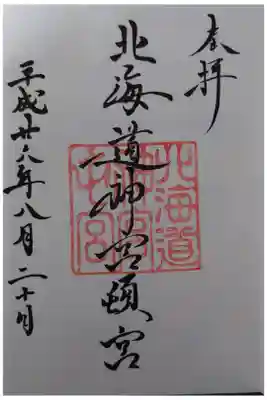 奉拝
北海道神宮頓宮
平成廿六年八月二十日
北海道